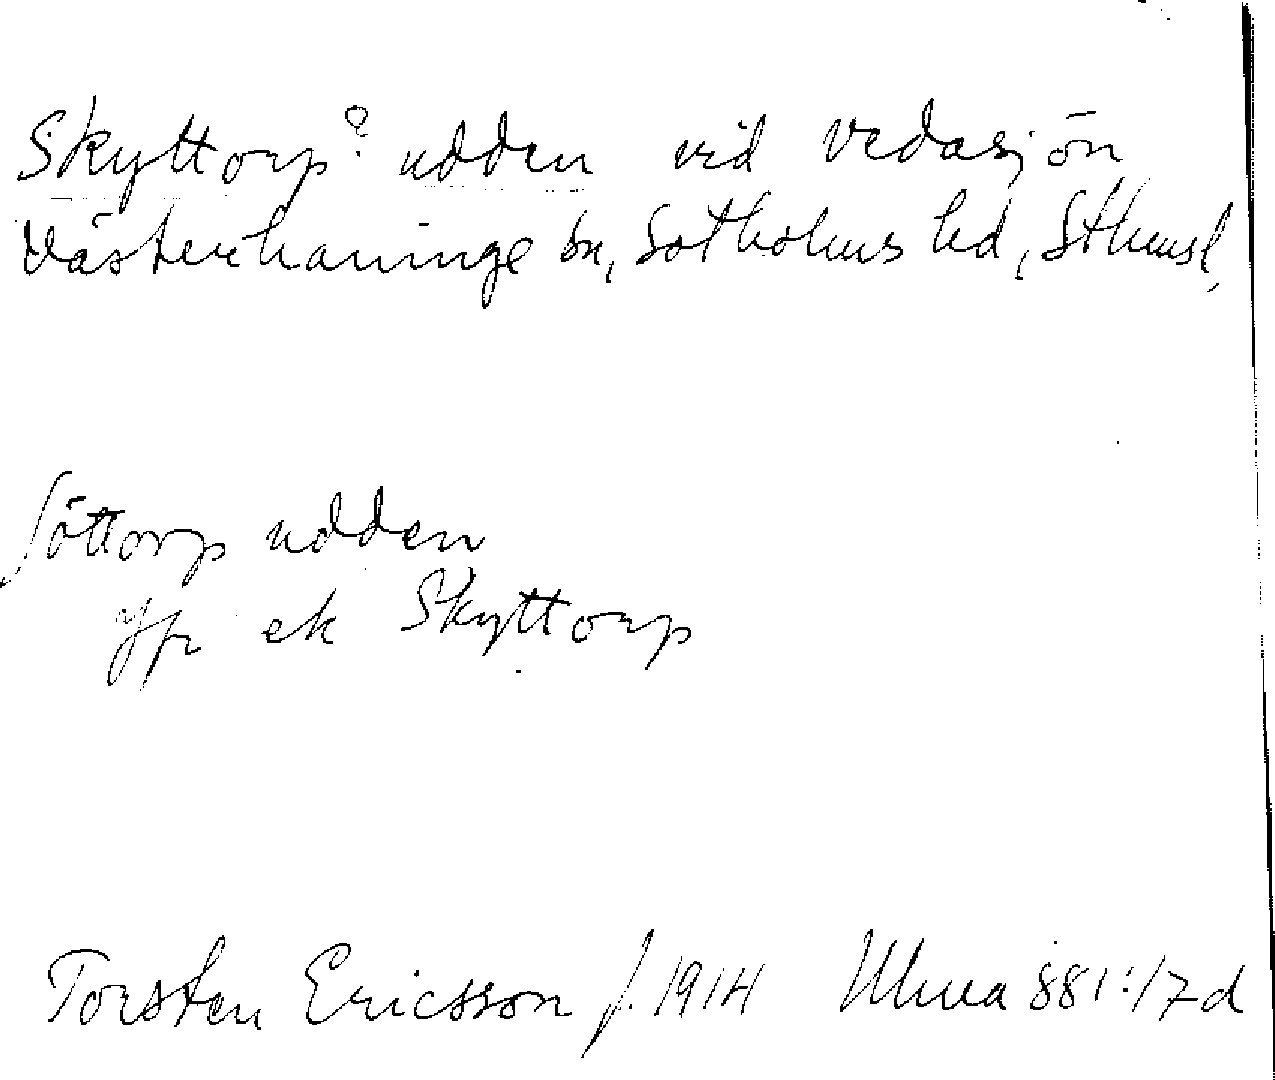 Skyttorp? udden vid vedasjön
Västerhaninge sn, Sotholms hd, Sthmsl,
Jöttorp udden
Jfr ek Skyttorp
Torsten Ericsson f. 1914 881:17d